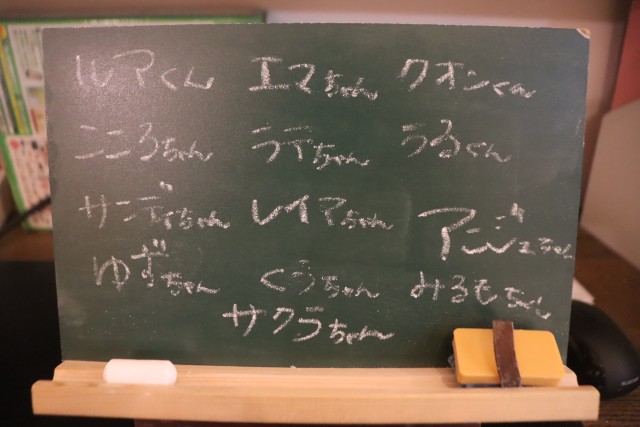 ルアくん エマちゃん クオンくん
こころちゃん ラテちゃん うるくん
サンディちゃん レイアちゃん アンジュちゃん
ゆずちゃん くぅちゃん みるもちゃん
サクラちゃん